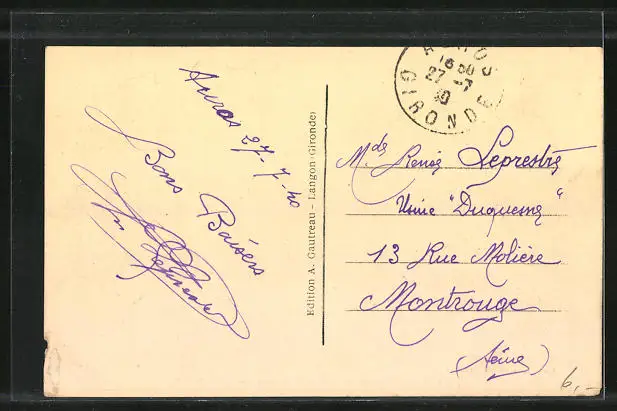 Auros 27-7-40
Bons Baisers
Edition A. Gautreau - Langon (Gironde)
AUROS
16 30
27 -7
40
GIRONDE
Mde Renée Leprestre
Usine "Duquesne"
13 Rue Molière
Montrouge
(Seine)
6,-